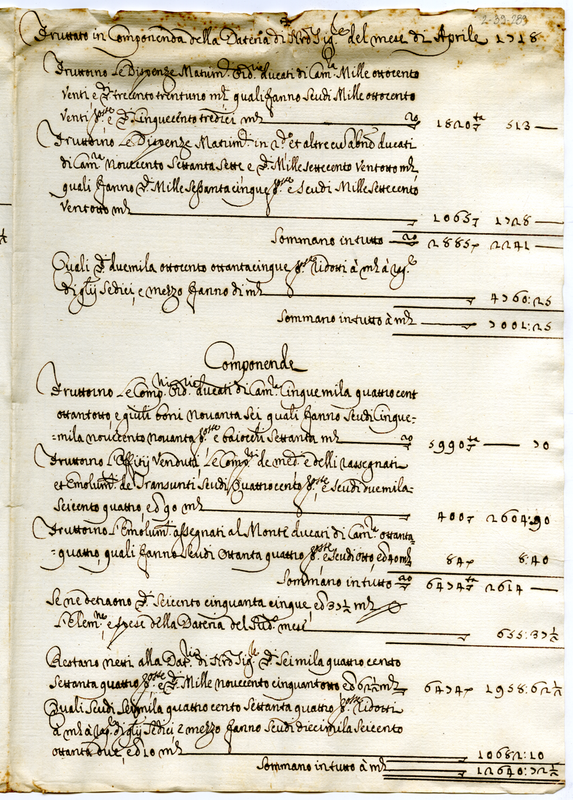 2-39-289
Fruttato in Componenda della Dataria di Nro Sig.re del mese di Aprile 1718
Fruttorno Le Dispenze Matrim. Ord. ducati di Cam.ra Mille ottocento
venti e trecento trentuno m.ta quali fanno Scudi Mille ottocento
Venti e Cinquecento tredici m.ta 1820 513
Fruttorno Le Dispenze Matrim. in et altre ducati
di Cam.ra Novecento Settanta Sette e Mille Settecento Ventotto m.ta
quali fanno Mille Sessanta cinque e Scudi Mille Settecento
Ventotto m.ta 1065 1728
Sommano in tutto 2885 2241
Quali duemila ottocento ottantacinque ridotti à m.ta à rag.e
di giulij Sedici, e mezzo fanno di m.ta 4760:25
Sommano in tutto à m.ta 7001:25
Componende
Fruttorno Le Comp. Ord. ducati di Cam.ra Cinque mila quattrocent
ottantotto, e giulii Novanta Sei quali fanno Scudi Cinque-
-mila novecento novanta e baiocchi Settanta m.ta 5990 70
Fruttorno L'Offitij Venduti Le Comp. de med. e delli rassegnati
et Emolum. de Transunti Scudi Quattrocento e Scudi due mila-
Seicento quattro ed 90 m.ta 400 2604:90
Fruttorno L'Emolum. assegnati al Monte ducati di Cam.ra ottanta-
-quattro, quali fanno Scudi Ottanta quattro e Scudi otto, ed 40 m.ta 84 8:40
Sommano in tutto 6474 2614
Se ne detraono Seicento cinquanta cinque ed 37½ m.ta
L'Elem. e spese della Dataria del Sud. mese 655:37½
Restano netti alla Dat. di Nro Sig.re Sei mila quattro cento
Settanta quattro e Mille novecento cinquantotto, ed 62½ m.ta 6474 1958:62½
Quali Scudi Seimila quattro cento Settanta quattro ridotti
à m.ta à rag.e di giulij Sedici e mezzo fanno Scudi diecimila Seicento
ottanta due, ed 10 m.ta 10682:10
Sommano in tutto à m.ta 12640:72½